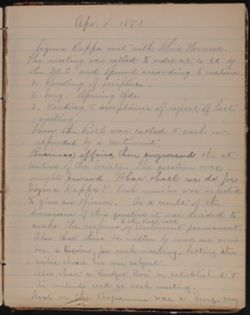 Apr 1
Sigma Kappa met with Miss
The meeting was called to order at 6.30 by
the and opened according to custom
1. Reading of Scripture.
2. Song - Opening Ode.
3. Reading & acceptance of report of last
meeting.
Then the Roll was called & each one
responded by a sentiment.
Business affairs then engrossed the at
tention of the Society. The question was
"What shall we do for
Sigma Kappa?" Each member was expected
to give an opinion. As a result of the
discussion of this question it was decided to
make the response by sentiment permanent.
Also that there be written by some one
a for each meeting, letting the
writer choose her own subject.
Also that a "Budget Box" be established &
its contents read at each meeting.
Next on the Programme was a